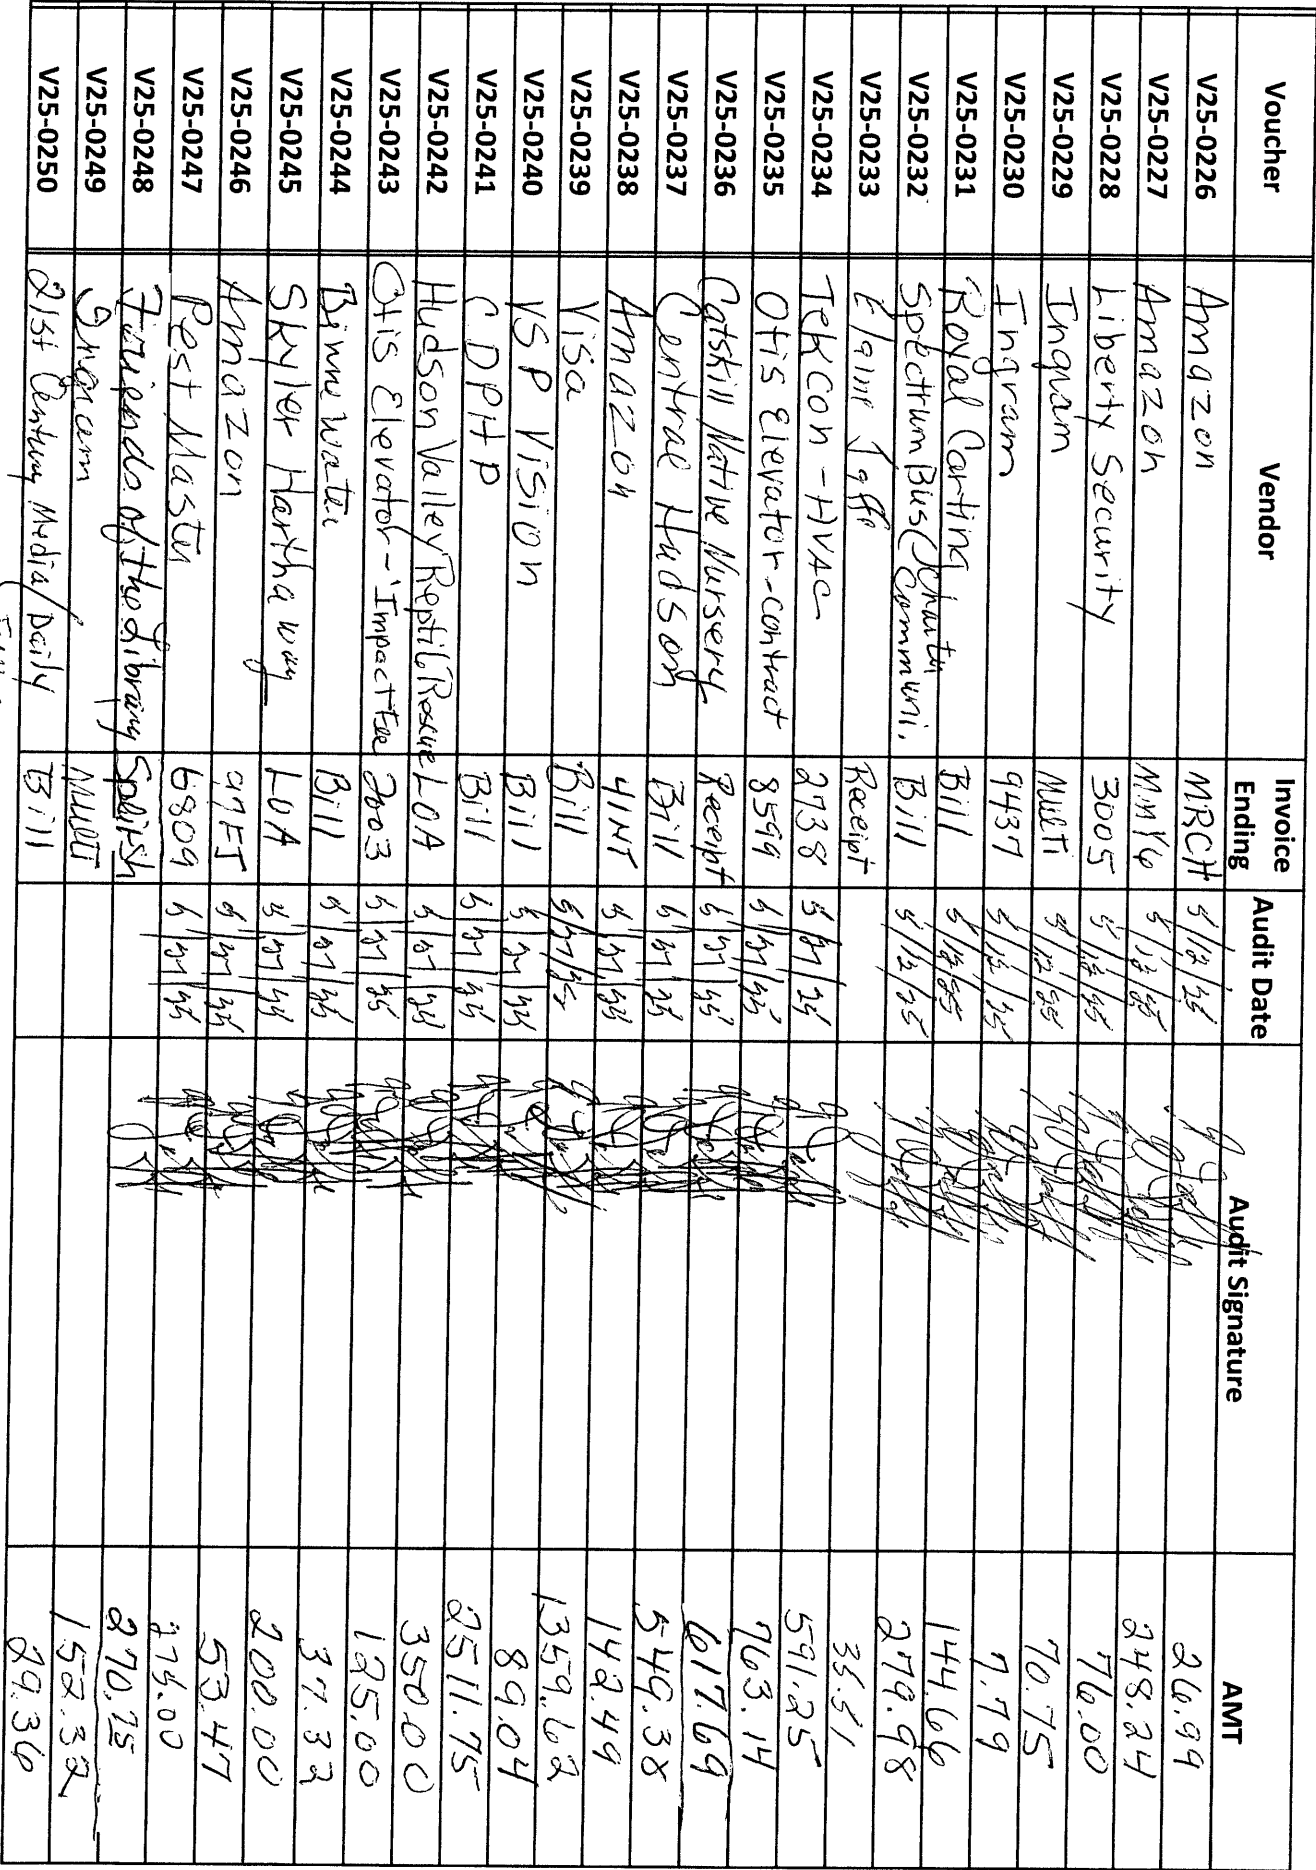 Voucher Vendor Invoice Ending Audit Date Audit Signature AMT
V25-0226 Amazon MRCH 5/12/25 26.99
V25-0227 Amazon MMY6 5/12/25 248.24
V25-0228 Liberty Security 3005 5/12/25 76.00
V25-0229 Ingram Multi 5/12/25 70.75
V25-0230 Ingram 9437 5/12/25 7.79
V25-0231 Royal Carting Bill 5/12/25 144.66
V25-0232 Spectrum Bus (Charter Communi. Bill 5/12/25 279.98
V25-0233 Elaine Jaffe Receipt 35.51
V25-0234 TekCon-HVAC 2738 5/27/25 591.25
V25-0235 Otis Elevator-contract 8599 5/27/25 763.14
V25-0236 Catskill Native Nursery Receipt 5/27/25 617.69
V25-0237 Central Hudson Bill 5/27/25 549.38
V25-0238 Amazon 41NT 5/27/25 142.49
V25-0239 Visa Bill 5/27/25 1359.62
V25-0240 VSP Vision Bill 5/27/25 89.04
V25-0241 CDPHP Bill 5/27/25 2511.75
V25-0242 Hudson Valley Reptile Rescue LOA 5/27/25 350.00
V25-0243 Otis Elevator-Impact Fee 2003 5/27/25 125.00
V25-0244 Binnewater Bill 5/27/25 37.32
V25-0245 Skyler Hartha way LOA 5/27/25 200.00
V25-0246 Amazon 5/27/25 53.47
V25-0247 Pest Master 6809 5/27/25 275.00
V25-0248 Friends of the Library 270.75
V25-0249 Ingram Multi 152.32
V25-0250 21st Century Media/Daily Bill 29.36